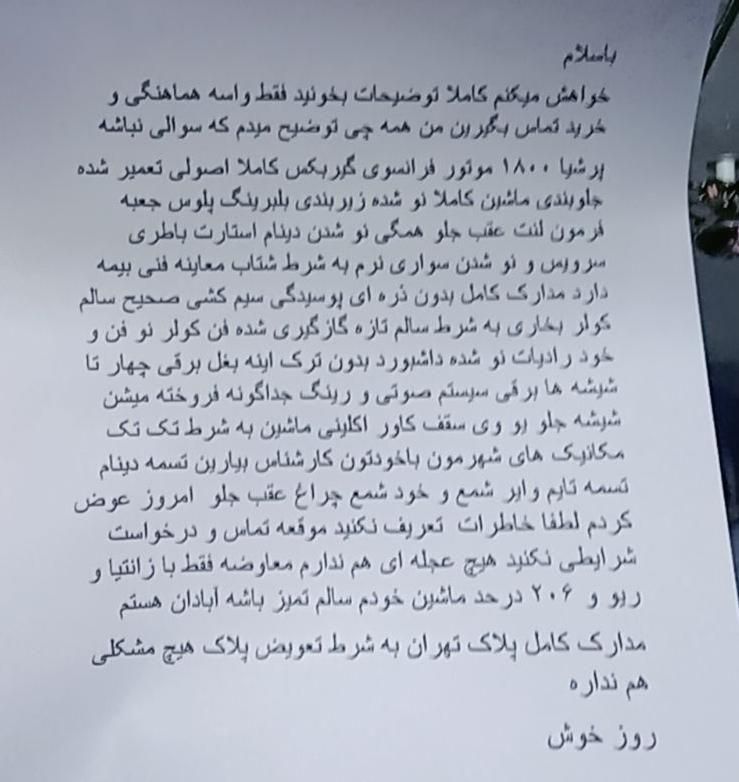 باسلام
خواهش میکنم کاملا توضیحات بخونید فقط واسه هماهنگی و
خرید تماس بگیرین من همه چی توضیح میدم که سوالی نباشه
پرشیا ۱۸۰۰ موتور فرانسوی گیربکس کاملا اصولی تعمیر شده
جلوبندی ماشین کاملا نو شده زیربندی بلبرینگ پلوس جعبه
فرمون لنت عقب جلو همگی نو شدن دینام استارت باطری
سرویس و نو شدن سواری نرم به شرط شتاب معاینه فنی بیمه
دارد مدارک کامل بدون ذره ای پوسیدگی سیم کشی صحیح سالم
کولر بخاری به شرط سالم تازه گازگیری شده فن کولر نو فن و
خود رادیات نو شده داشبورد بدون ترک اینه بغل برقی چهار تا
شیشه ها برقی سیستم صوتی و رینگ جداگونه فروخته میشن
شیشه جلو یو وی سقف کاور اکلینی ماشین به شرط تک تک
مکانیک های شهرمون باخودتون کارشناس بیارین تسمه دینام
تسمه تایم وایر شمع و خود شمع چراغ عقب جلو امروز عوض
کردم لطفا خاطرات تعریف نکنید موقعه تماس و درخواست
شرایطی نکنید هیچ عجله ای هم ندارم معاوضه فقط با زانتیا و
ریو و ۲۰۶ درحد ماشین خودم سالم تمیز باشه آبادان هستم
مدارک کامل پلاک تهران به شرط تعویض پلاک هیچ مشکلی
هم نداره
روز خوش